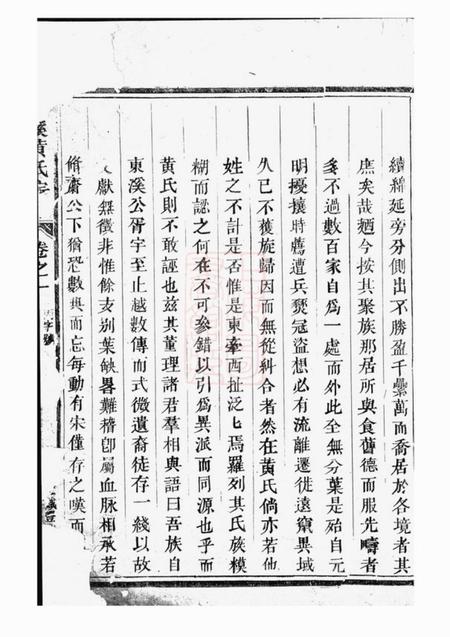 續綿延旁分側出不勝盈千纍萬而喬居於各境者其
庶矣哉廼今按其聚族那居所與食舊德而服先疇者
多不過數百家自爲一處而外此全無分葉是殆自元
明擾攘時蕩遭兵燹冦盜想必有流離遷徙遠竄異域
久已不獲旋歸因而無從糾合者然在黄氏倘亦若他
姓之不計是否惟是東牽西扯泛乚焉羅列其氏族模
糊而認之何在不可參錯以引爲異派而同源也乎而
黄氏則不敢誣也兹其董理諸君羣相與語曰吾族自
東溪公胥宇至止越數傳而式微遺裔徒存一綫以故
文獻無徵非惟餘支别葉缺畧難稽卽屬血脉相承若
脩齋公下猶恐數典而忘每動有宋僅存之嘆而
溪黄氏宗
卷之一
字號